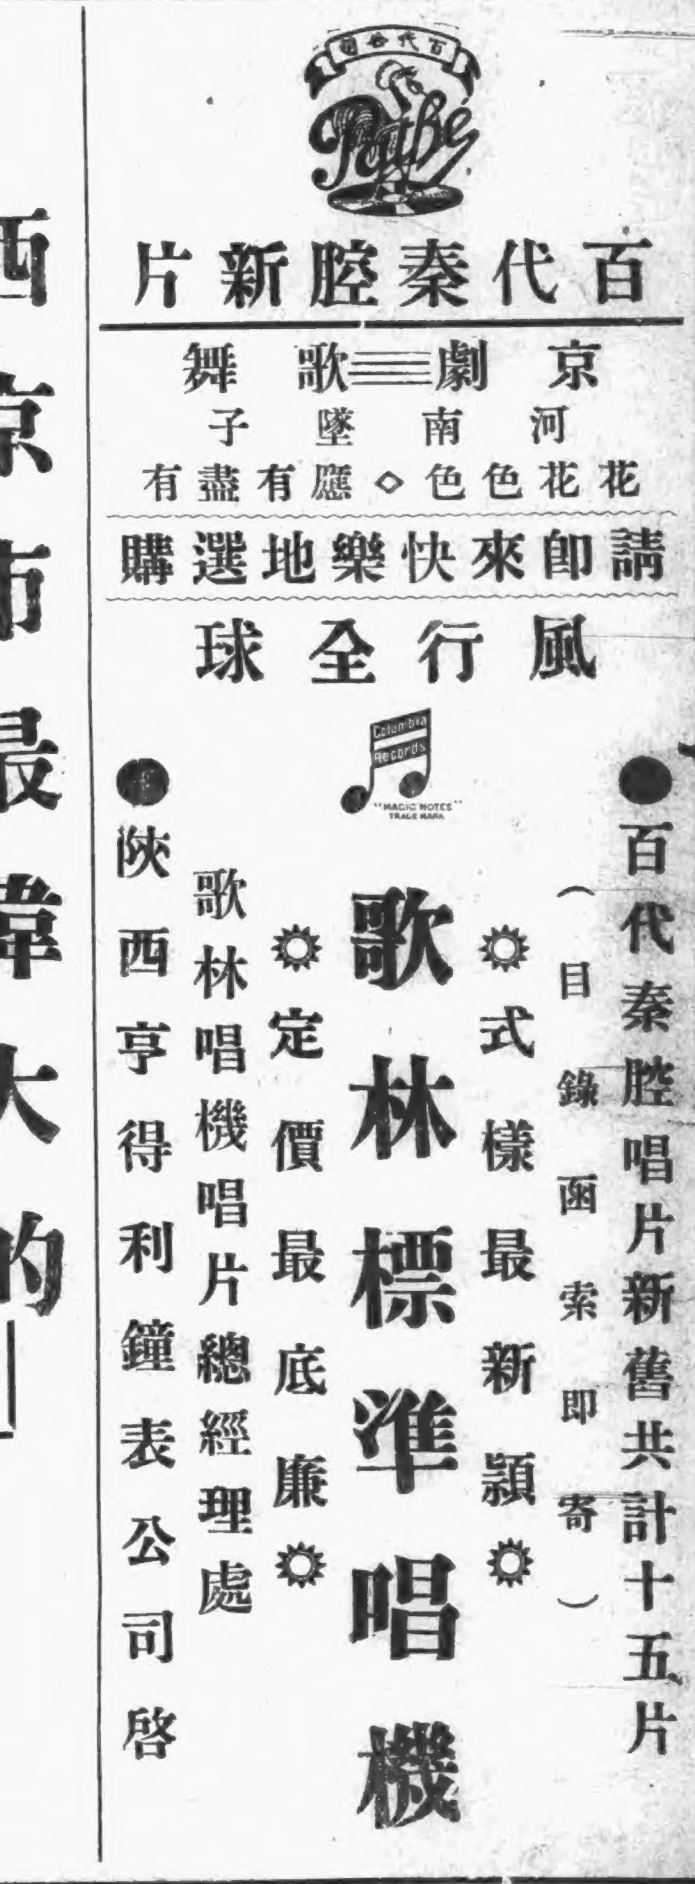 百代公司
Pathé
百代秦腔新片
京劇 歌舞
河南墜子
花花色色◇應有盡有
請卽來快樂地選購
風行全球
Columbia
Records
"MAGIC NOTES"
TRADE MARK
●百代秦腔唱片新舊共計十五片
（目錄函索即寄）
式樣最新穎
歌林標準唱機
定價最底廉
歌林唱機唱片總經理處
●陝西亨得利鐘表公司啓
西京市最偉大的